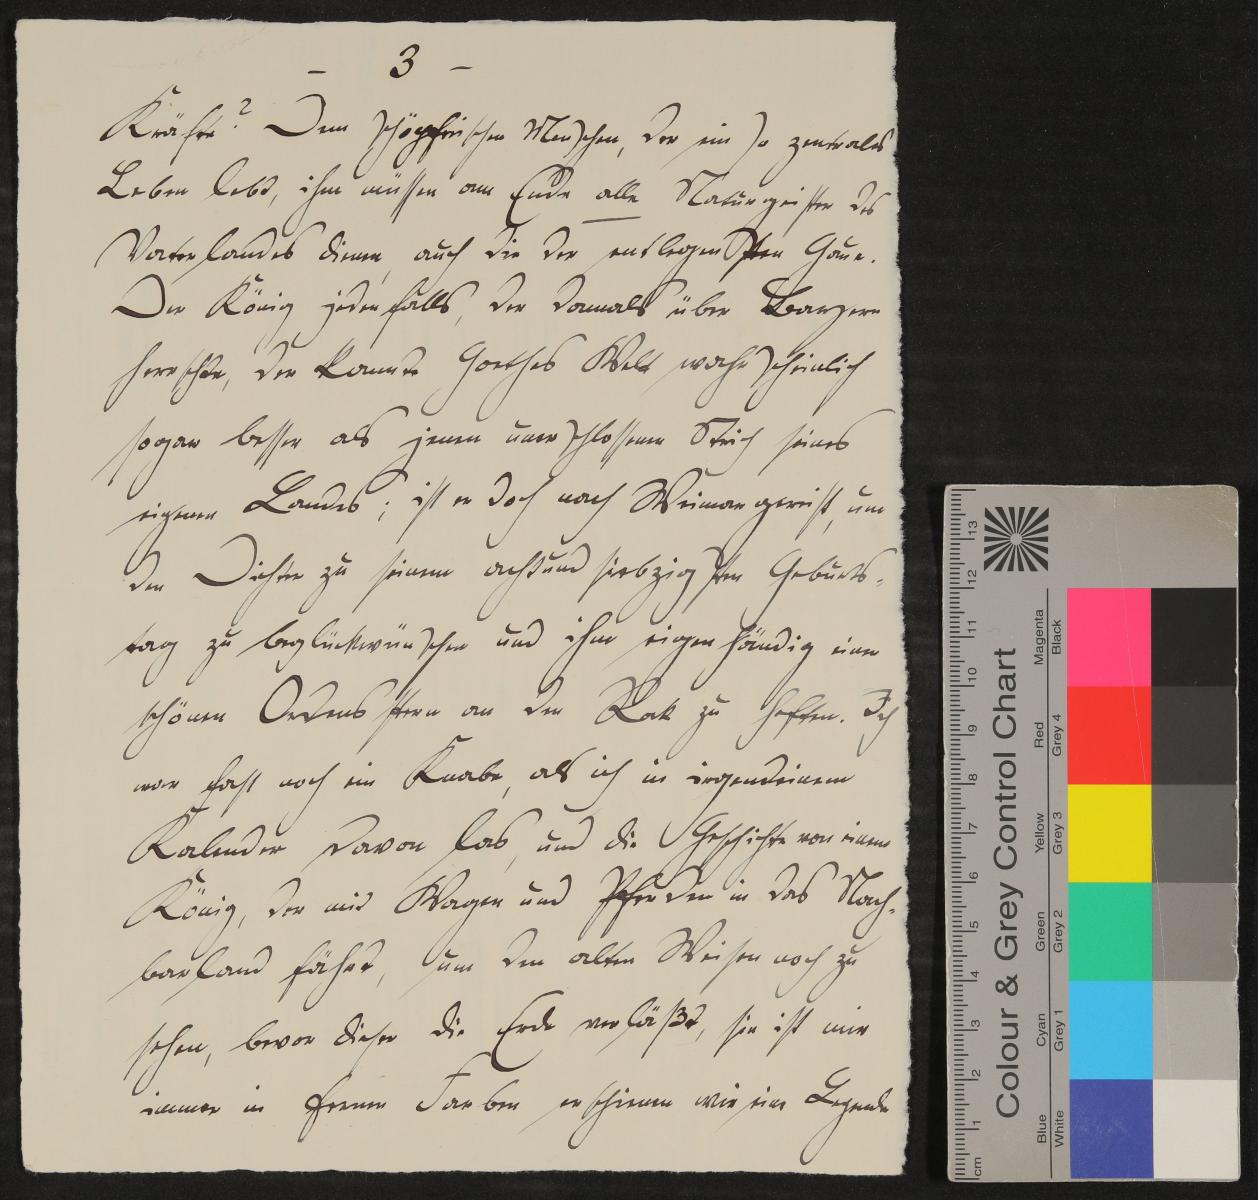 - 3 -
Kräfte? Dem schöpferischen Menschen, der ein so zentrales
Leben lebt, ihm müssen am Ende alle Naturgeister des
Vaterlandes dienen, auch die der entlegensten Gaue.
Der König jedenfalls, der damals über Bayern
herrschte, der kannte Goethes Welt wahrscheinlich
sogar besser als jenen unerschlossenen Strich seines
eigenen Landes; ist er doch nach Weimar gereist, um
den Dichter zu seinem achtundsiebzigsten Geburts-
tag zu beglückwünschen und ihm eigenhändig einen
schönen Ordensstern an den Rock zu heften. Ich
war fast noch ein Knabe, als ich in irgendeinem
Kalender davon las, und die Geschichte von einem
König, der mit Wagen und Pferden in das Nach-
barland fährt, um den alten Weisen noch zu
sehen, bevor dieser die Erde verläßt, sie ist mir
immer in Farben erschienen wie eine Legende
Colour & Grey Control Chart
Blue Cyan Green Yellow Red Magenta
White Grey 1 Grey 2 Grey 3 Grey 4 Black
cm 1 2 3 4 5 6 7 8 9 10 11 12 13